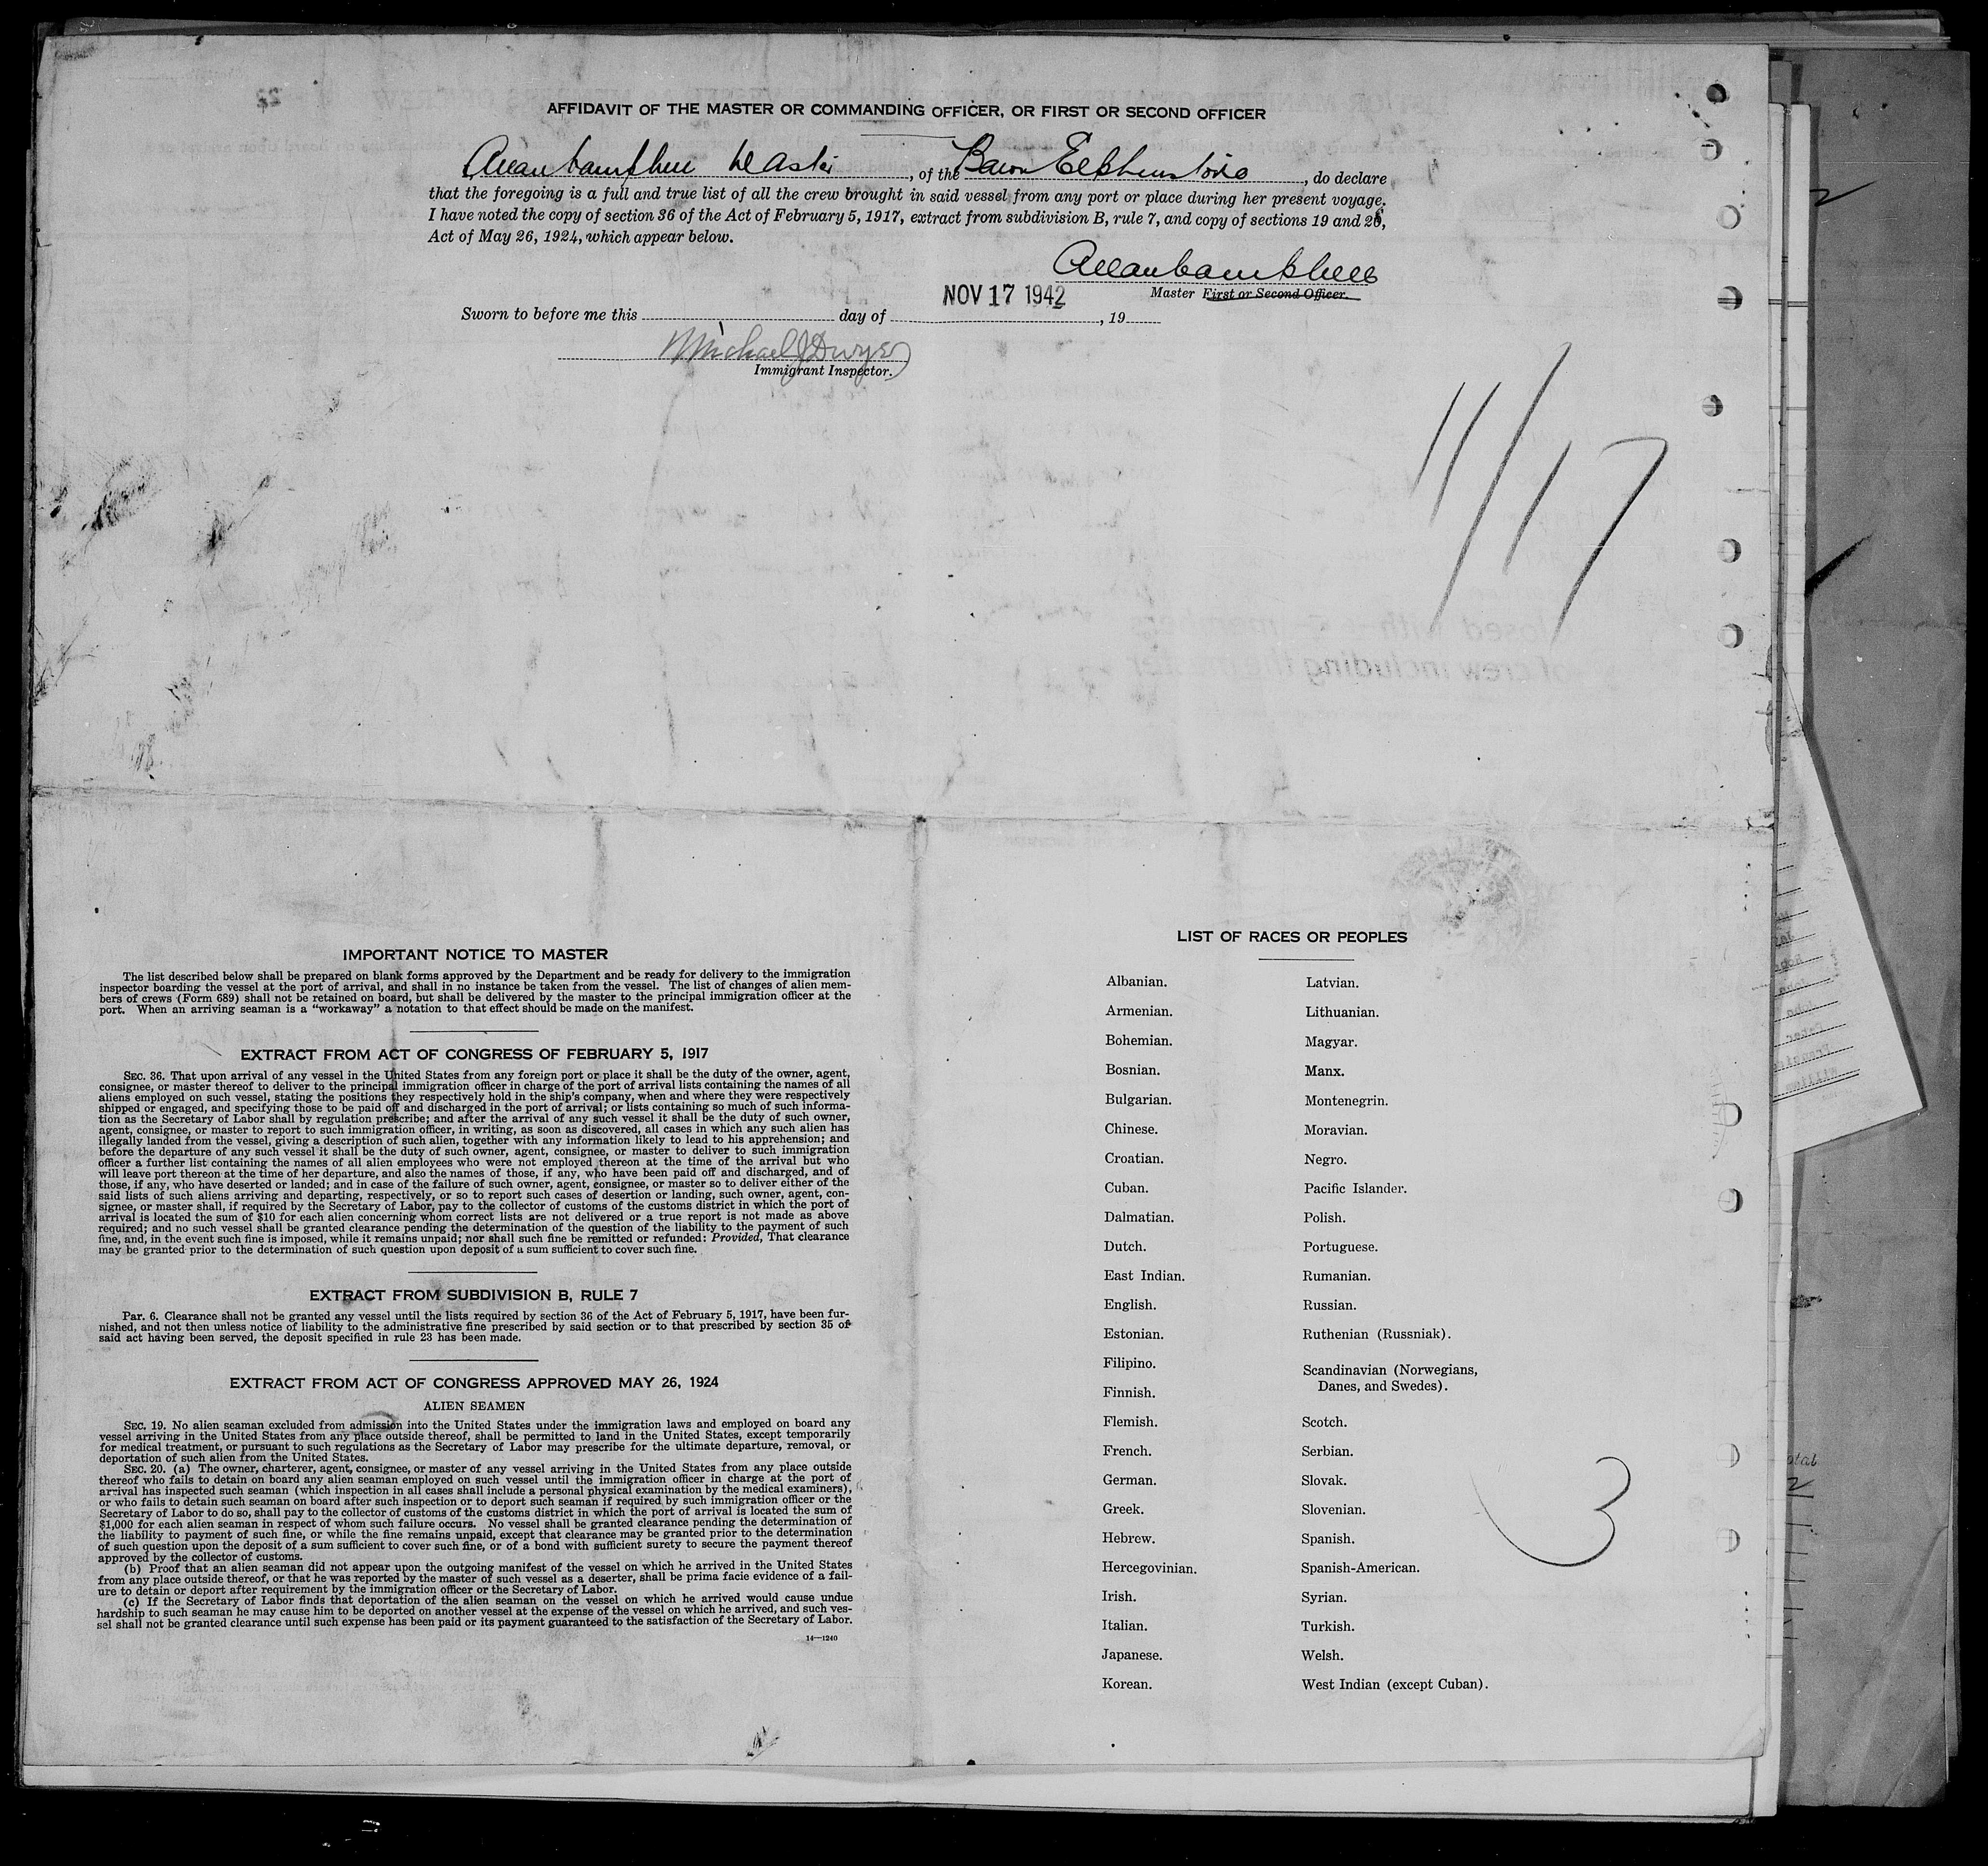 AFFIDAVIT OF THE MASTER OR COMMANDING OFFICER, OR FIRST OR SECOND OFFICER
Allan Campbell Master, of the Baron Elphinstone, do declare
that the foregoing is a full and true list of all the crew brought in said vessel from any port or place during her present voyage.
I have noted the copy of section 36 of the Act of February 5, 1917, extract from subdivision B, rule 7, and copy of sections 19 and 20,
Act of May 26, 1924, which appear below.
Allan Campbell
NOV 17 1942
Master First or Second Officer.
Sworn to before me this day of , 19
Michael J Dwyer
Immigrant Inspector.
11/17
IMPORTANT NOTICE TO MASTER
The list described below shall be prepared on blank forms approved by the Department and be ready for delivery to the immigration
inspector boarding the vessel at the port of arrival, and shall in no instance be taken from the vessel. The list of changes of alien mem-
bers of crews (Form 689) shall not be retained on board, but shall be delivered by the master to the principal immigration officer at the
port. When an arriving seaman is a “workaway” a notation to that effect should be made on the manifest.
EXTRACT FROM ACT OF CONGRESS OF FEBRUARY 5, 1917
SEC. 36. That upon arrival of any vessel in the United States from any foreign port or place it shall be the duty of the owner, agent,
consignee, or master thereof to deliver to the principal immigration officer in charge of the port of arrival lists containing the names of all
aliens employed on such vessel, stating the positions they respectively hold in the ship's company, when and where they were respectively
shipped or engaged, and specifying those to be paid off and discharged in the port of arrival; or lists containing so much of such informa-
tion as the Secretary of Labor shall by regulation prescribe; and after the arrival of any such vessel it shall be the duty of such owner,
agent, consignee, or master to report to such immigration officer, in writing, as soon as discovered, all cases in which any such alien has
illegally landed from the vessel, giving a description of such alien, together with any information likely to lead to his apprehension; and
before the departure of any such vessel it shall be the duty of such owner, agent, consignee, or master to deliver to such immigration
officer a further list containing the names of all alien employees who were not employed thereon at the time of the arrival but who
will leave port thereon at the time of her departure, and also the names of those, if any, who have been paid off and discharged, and of
those, if any, who have deserted or landed; and in case of the failure of such owner, agent, consignee, or master so to deliver either of the
said lists of such aliens arriving and departing, respectively, or so to report such cases of desertion or landing, such owner, agent, con-
signee, or master shall, if required by the Secretary of Labor, pay to the collector of customs of the customs district in which the port of
arrival is located the sum of $10 for each alien concerning whom correct lists are not delivered or a true report is not made as above
required; and no such vessel shall be granted clearance pending the determination of the question of the liability to the payment of such
fine, and, in the event such fine is imposed, while it remains unpaid; nor shall such fine be remitted or refunded: Provided, That clearance
may be granted prior to the determination of such question upon deposit of a sum sufficient to cover such fine.
EXTRACT FROM SUBDIVISION B, RULE 7
Par. 6. Clearance shall not be granted any vessel until the lists required by section 36 of the Act of February 5, 1917, have been fur-
nished, and not then unless notice of liability to the administrative fine prescribed by said section or to that prescribed by section 35 of
said act having been served, the deposit specified in rule 23 has been made.
EXTRACT FROM ACT OF CONGRESS APPROVED MAY 26, 1924
ALIEN SEAMEN
SEC. 19. No alien seaman excluded from admission into the United States under the immigration laws and employed on board any
vessel arriving in the United States from any place outside thereof, shall be permitted to land in the United States, except temporarily
for medical treatment, or pursuant to such regulations as the Secretary of Labor may prescribe for the ultimate departure, removal, or
deportation of such alien from the United States.
SEC. 20. (a) The owner, charterer, agent, consignee, or master of any vessel arriving in the United States from any place outside
thereof who fails to detain on board any alien seaman employed on such vessel until the immigration officer in charge at the port of
arrival has inspected such seaman (which inspection in all cases shall include a personal physical examination by the medical examiners),
or who fails to detain such seaman on board after such inspection or to deport such seaman if required by such immigration officer or the
Secretary of Labor to do so, shall pay to the collector of customs of the customs district in which the port of arrival is located the sum of
$1,000 for each alien seaman in respect of whom such failure occurs. No vessel shall be granted clearance pending the determination of
the liability to payment of such fine, or while the fine remains unpaid, except that clearance may be granted prior to the determination
of such question upon the deposit of a sum sufficient to cover such fine, or of a bond with sufficient surety to secure the payment thereof
approved by the collector of customs.
(b) Proof that an alien seaman did not appear upon the outgoing manifest of the vessel on which he arrived in the United States
from any place outside thereof, or that he was reported by the master of such vessel as a deserter, shall be prima facie evidence of a fail-
ure to detain or deport after requirement by the immigration officer or the Secretary of Labor.
(c) If the Secretary of Labor finds that deportation of the alien seaman on the vessel on which he arrived would cause undue
hardship to such seaman he may cause him to be deported on another vessel at the expense of the vessel on which he arrived, and such ves-
sel shall not be granted clearance until such expense has been paid or its payment guaranteed to the satisfaction of the Secretary of Labor.
14—1240
LIST OF RACES OR PEOPLES
Albanian.
Armenian.
Bohemian.
Bosnian.
Bulgarian.
Chinese.
Croatian.
Cuban.
Dalmatian.
Dutch.
East Indian.
English.
Estonian.
Filipino.
Finnish.
Flemish.
French.
German.
Greek.
Hebrew.
Hercegovinian.
Irish.
Italian.
Japanese.
Korean.
Latvian.
Lithuanian.
Magyar.
Manx.
Montenegrin.
Moravian.
Negro.
Pacific Islander.
Polish.
Portuguese.
Rumanian.
Russian.
Ruthenian (Russniak).
Scandinavian (Norwegians,
Danes, and Swedes).
Scotch.
Serbian.
Slovak.
Slovenian.
Spanish.
Spanish-American.
Syrian.
Turkish.
Welsh.
West Indian (except Cuban).
3